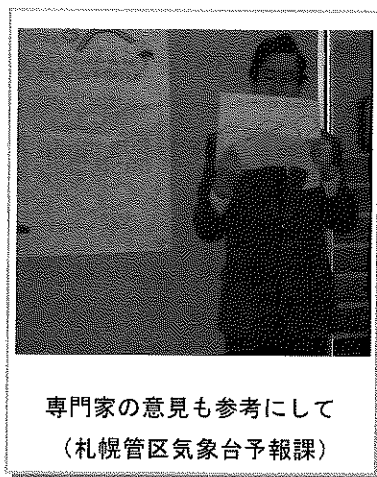 専門家の意見も参考にして
（札幌管区気象台予報課）